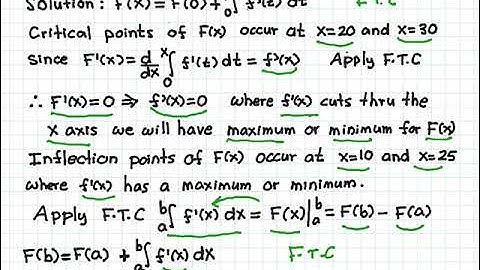 Solution: F(x) = F(0) + ∫₀ f'(t) dt F.T.C
Critical points of F(x) occur at x=20 and x=30
Since F'(x) = d/dx ∫₀ˣ f'(t) dt = f'(x) Apply F.T.C
∴ F'(x)=0 ⇒ f'(x)=0 where f'(x) cuts thru the
x axis we will have maximum or minimum for F(x)
Inflection points of F(x) occur at x=10 and x=25
where f'(x) has a maximum or minimum.
Apply F.T.C ∫ₐᵇ f'(x) dx = F(x)|ₐᵇ = F(b) - F(a)
F(b) = F(a) + ∫ₐᵇ f'(x) dx F.T.C